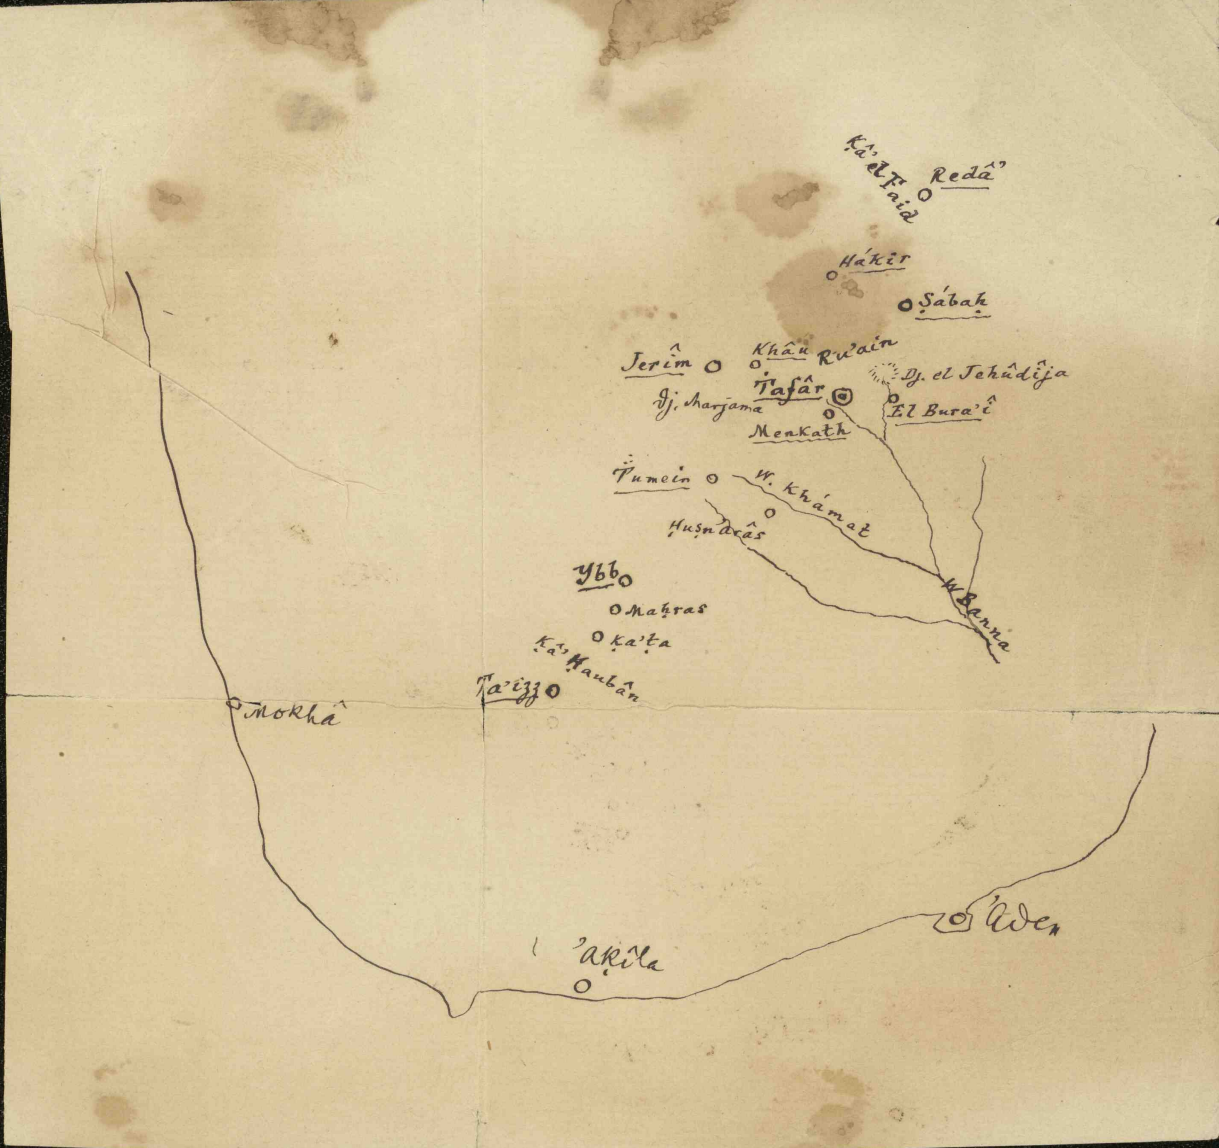 Ḳâʾ el Faid
Redâʾ
Hákir
Ṣábaḥ
Jerîm
Khâu
Ruʾain
Dj. el Jehûdîja
Ṭafâr
Dj. Marjama
El Buraʾî
Menkath
Tumein
W. Khámaṭ
Ḥuṣn
W Banna
Ybb
Maḥras
Ḳaʾṭa
Ḳâʾ Ḥaubân
Taʾizz
Mokhâ
ʾAden
ʾAḳîla